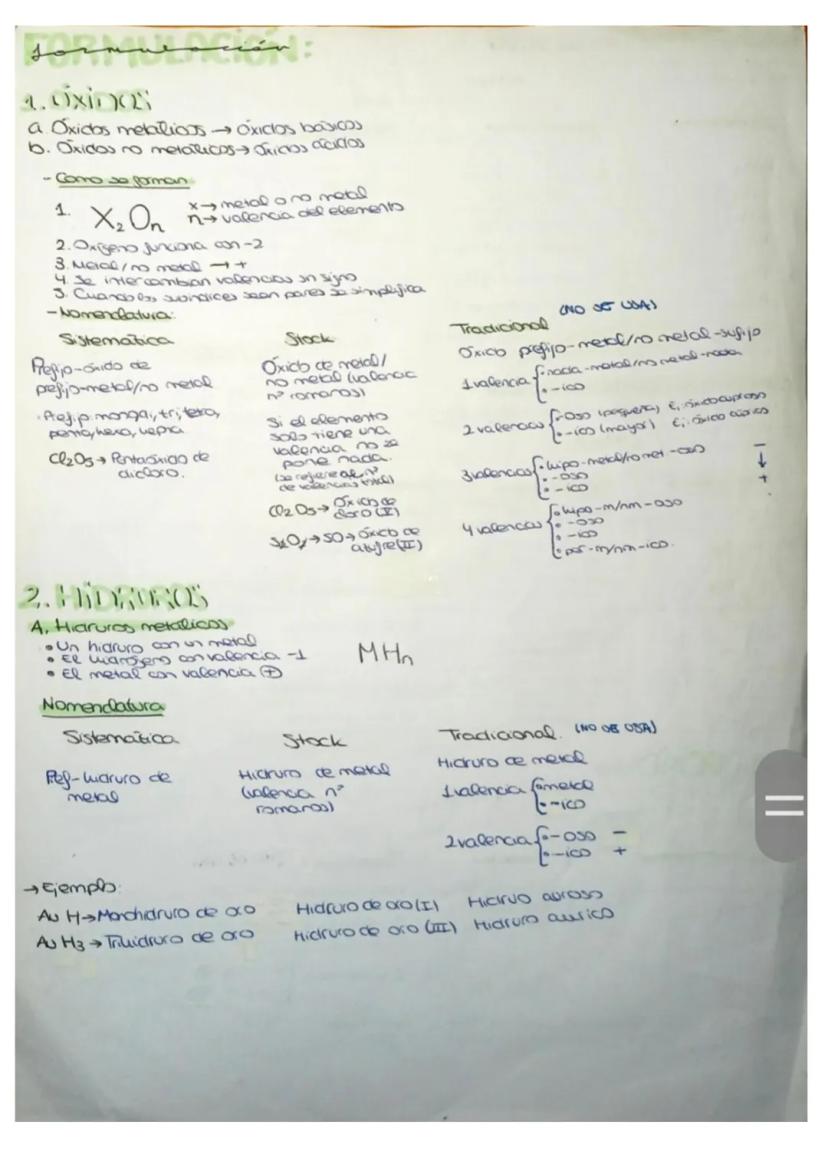 FORMULACIÓN:
formulación
1. ÓXIDOS
a. Óxidos metálicos → óxidos básicos
b. Óxidos no metálicos → óxidos ácidos
- Como se forman
1. X₂On
x → metal o no metal
n → valencia del elemento
2. Oxígeno funciona con -2
3. Metal/no metal → +
4. Se intercambian valencias sin signo
5. Cuando los subíndices sean pares se simplifica
- Nomenclatura:
Sistemática
Prefijo-óxido de
prefijo-metal/no metal
Cl₂O₅ → Pentaóxido de
dicloro.
Stock
Óxido de metal/
no metal (valencia
nº romanos)
Si el elemento
solo tiene una
valencia no se
pone nada.
(se refiere al nº
de valencias total)
Cl₂O₅ → Óxido de
cloro (V)
→ SO → óxido de
azufre (II)
Tradicional (NO SE USA)
Óxido prefijo-metal/no metal-sufijo
1 valencia • nada-metal/no metal-nada
• -ico
2 valencias • -oso (pequeña) Ej: óxido cuproso
• -ico (mayor) Ej: óxido cúprico
3 valencias • hipo-metal/no met-oso -
• -oso ↓
• -ico +
4 valencias • hipo-m/nm-oso
• -oso
• -ico
• per-m/nm-ico.
2. HIDRUROS
A. Hidruros metálicos
• Un hidruro con un metal
• El hidrógeno con valencia -1
• El metal con valencia ⊕
MHn
Nomenclatura
Sistemática
Pref-hidruro de
metal
Stock
Hidruro de metal
(valencia nº
romanos)
Tradicional. (NO SE USA)
Hidruro de metal
1 valencia • metal
• -ico
2 valencia • -oso -
• -ico +
→ Ejemplo:
Au H → Monohidruro de oro Hidruro de oro (I) Hidruo auroso
Au H₃ → Trihidruro de oro Hidruro de oro (III) Hidruro aurico